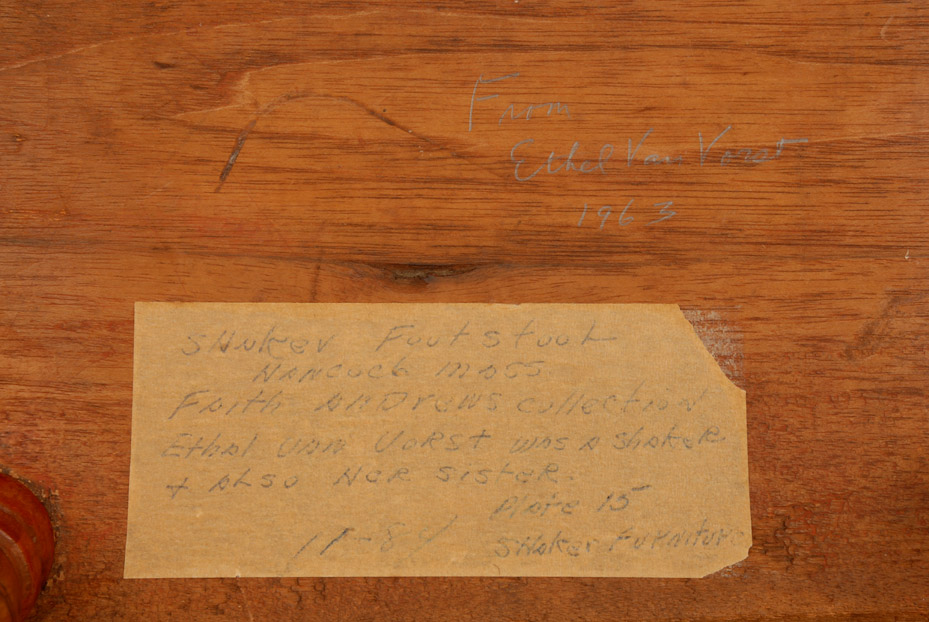 From
Ethel Van Vorst
1963
SHAKER Footstool
HANCOCK MASS.
FAITH ANDREWS collection
Ethal VAN VORST was A Shaker
+ ALSO HER SISTER.
Plate 15
11-84 SHAKER FURNITURE